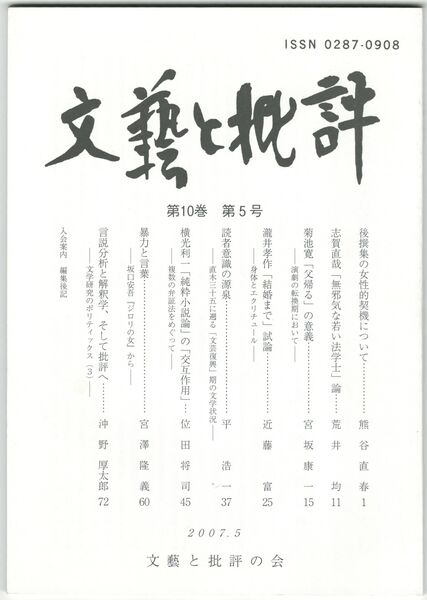 ISSN 0287-0908
文藝と批評
第10巻 第5号
後撰集の女性的契機について………熊谷直春 1
志賀直哉「無邪気な若い法学士」論………荒井均 11
菊池寛「父帰る」の意義………宮坂康一 15
――演劇の転換期において――
瀧井孝作「結婚まで」試論………近藤富 25
――身体とエクリチュール――
読者意識の源泉………平浩一 37
――直木三十五に遡る「文芸復興」期の文学状況――
横光利一「純粋小説論」の「交互作用」………位田将司 45
――複数の弁証法をめぐって――
暴力と言葉………宮澤隆義 60
――坂口安吾「ジロリの女」から――
言説分析と解釈学、そして批評へ………沖野厚太郎 72
――文学研究のポリティックス(3)――
入会案内 編集後記
2007.5
文藝と批評の会